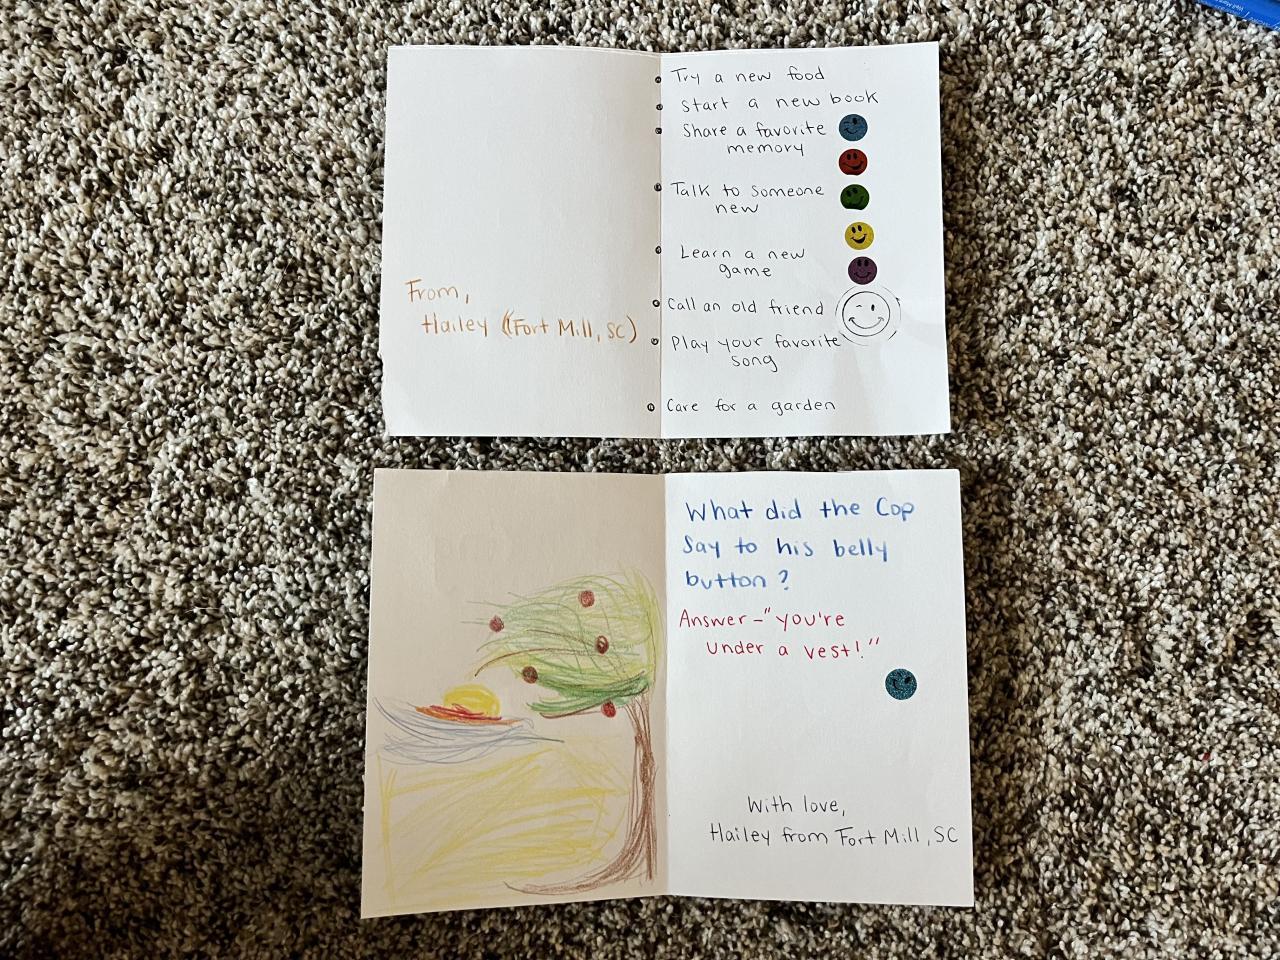 Try a new food
Start a new book
Share a favorite
memory
Talk to someone
new
Learn a new
game
Call an old friend
Play your favorite
song
Care for a garden
From,
Hailey (Fort Mill, SC)
What did the Cop
Say to his belly
button?
Answer - "you're
under a vest!"
With love,
Hailey from Fort Mill, SC